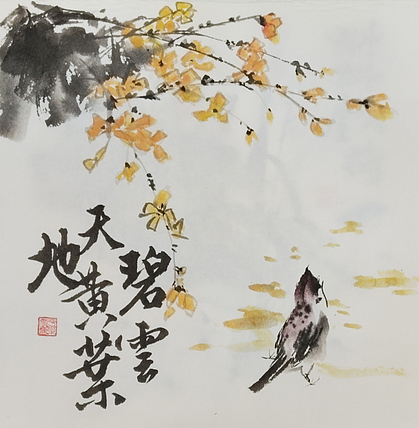 碧雲
天黄葉
地